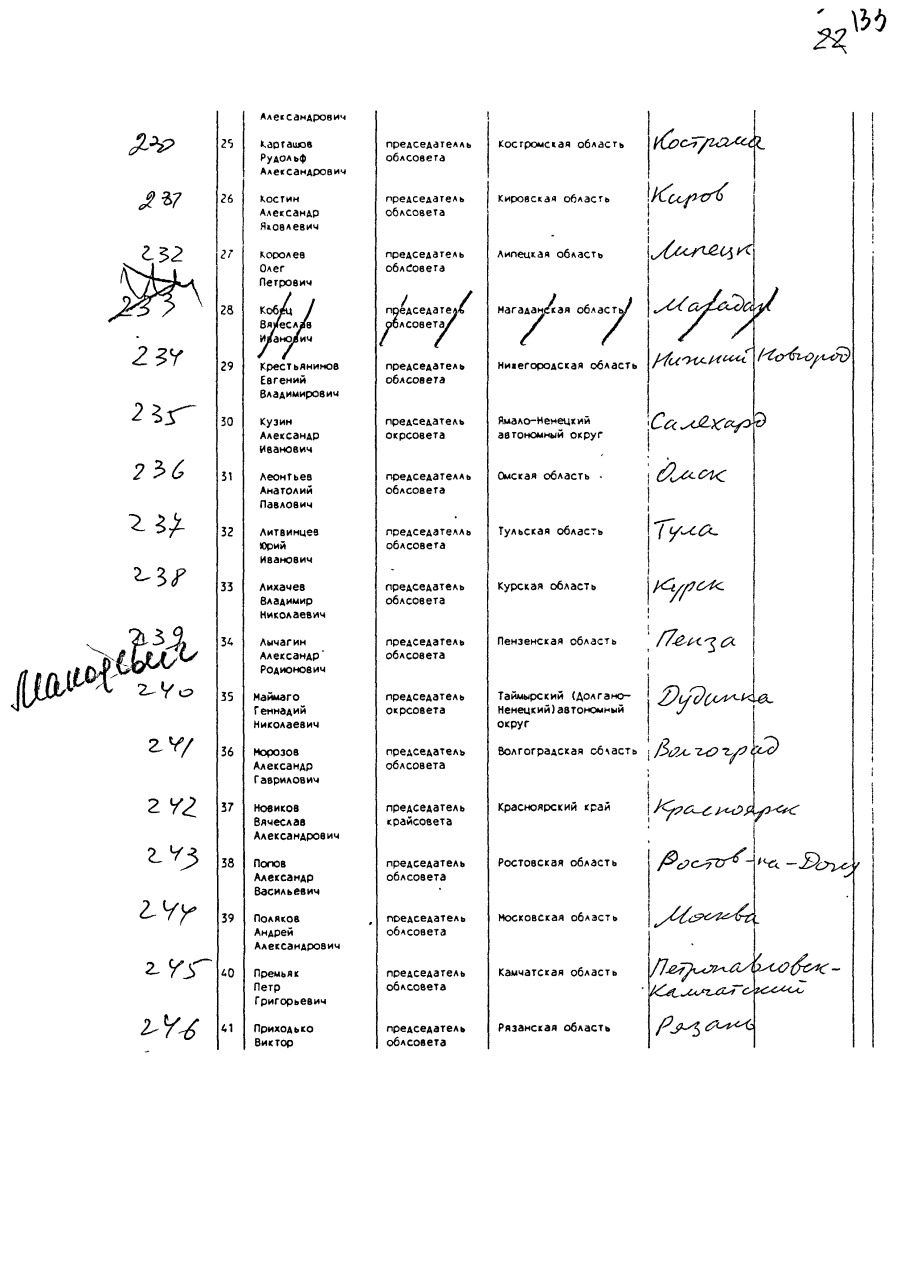 133
22
Александрович
230 25 Карташов председателль Костромская область Кострома
Рудольф облсовета
Александрович
231 26 Костин председатель Кировская область Киров
Александр облсовета
Яковлевич
232 27 Королев председатель Липецкая область Липецк
Олег облсовета
Петрович
233 28 Кобец председатель Магаданская область Магадан
Вячеслав облсовета
Иванович
234 29 Крестьянинов председатель Нижегородская область Нижний Новгород
Евгений облсовета
Владимирович
235 30 Кузин председатель Ямало-Ненецкий Салехард
Александр окрсовета автономный округ
Иванович
236 31 Леонтьев председателль Омская область Омск
Анатолий облсовета
Павлович
237 32 Литвинцев председателль Тульская область Тула
Юрий облсовета
Иванович
238 33 Лихачев председатель Курская область Курск
Владимир облсовета
Николаевич
239 34 Лычагин председатель Пензенская область Пенза
Александр облсовета
Родионович
240 35 Маймаго председатель Таймырский (Долгано- Дудинка
Геннадий окрсовета Ненецкий)автономный
Николаевич округ
241 36 Морозов председатель Волгоградская область Волгоград
Александр облсовета
Гаврилович
242 37 Новиков председатель Красноярский край Красноярск
Вячеслав крайсовета
Александрович
243 38 Попов председатель Ростовская область Ростов-на-Дону
Александр облсовета
Васильевич
244 39 Поляков председатель Московская область Москва
Андрей облсовета
Александрович
245 40 Премьяк председатель Камчатская область Петропавловск-
Петр облсовета Камчатский
Григорьевич
246 41 Приходько председатель Рязанская область Рязань
Виктор облсовета